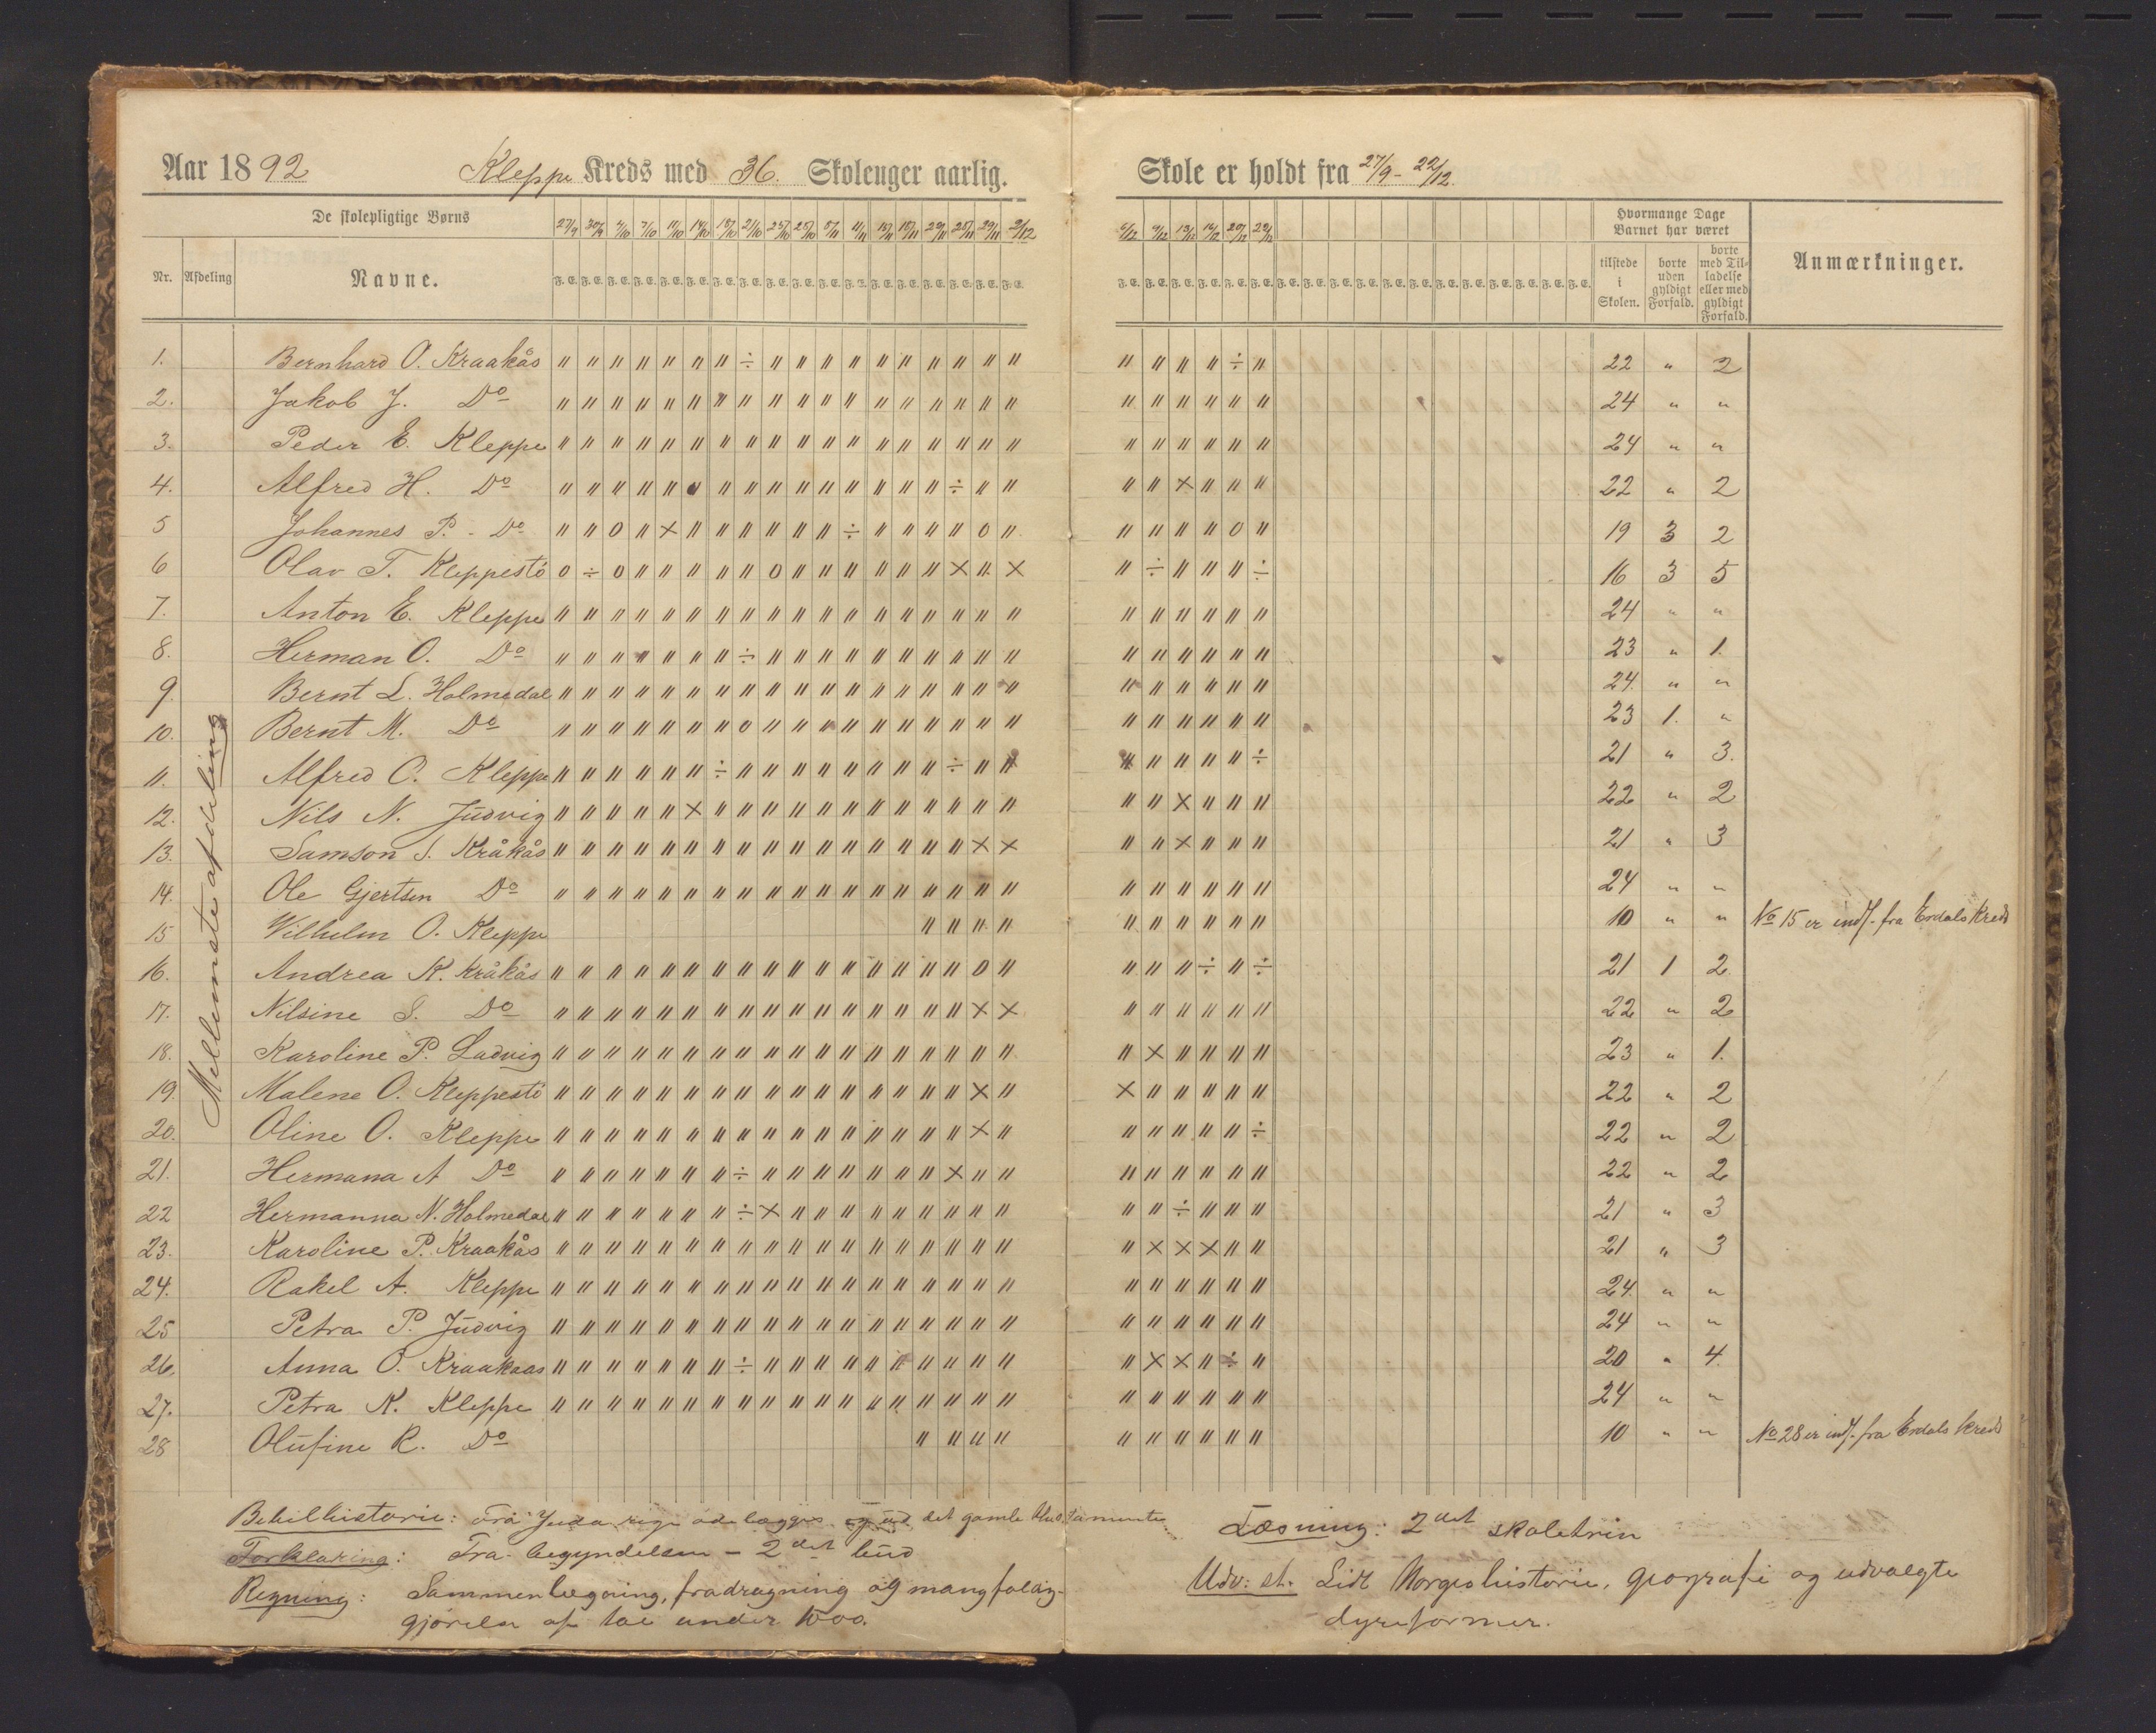 Aar 1892 Kleppe Kreds med 36. Skoleuger aarlig.
De skolepligtige Børns
27/9 30/9 4/10 7/10 11/10 14/10 18/10 21/10 25/10 28/10 8/11 11/11 15/11 18/11 22/11 25/11 29/11 2/12
Nr. Afdeling Navne. F. E. F. E. F. E. F. E. F. E. F. E. F. E. F. E. F. E. F. E. F. E. F. E. F. E. F. E. F. E. F. E. F. E. F. E.
Mellemste afdeling
1. Bernhard O. Kraakås " " " " " " " ÷ " " " " " " " " " "
2. Jakob J. Do " " " " " " " " " " " " " " " " " "
3. Peder E. Kleppe " " " " " " " " " " " " " " " " " "
4. Alfred H. Do " " " " " " " " " " " " " " " ÷ " "
5 Johannes P. - Do " " 0 " × " " " " " " ÷ " " " " 0 "
6 Olav T. Kleppestö 0 ÷ 0 " " " " " 0 " " " " " " × " ×
7. Anton E. Kleppe " " " " " " " " " " " " " " " " " "
8. Herman O. Do " " " " " " " ÷ " " " " " " " " " "
9. Bernt L. Holmedal " " " " " " " " " " " " " " " " " "
10. Bernt M. Do " " " " " " " 0 " " " " " " " " " "
11. Alfred C. Kleppe " " " " " " ÷ " " " " " " " " ÷ " "
12. Nils N. Judvig " " " " " × " " " " " " " " " " " "
13. Samson S. Kråkås " " " " " " " " " " " " " " " " × ×
14. Ole Gjertsen Do " " " " " " " " " " " " " " " " " "
15 Vilhelm O. Kleppe " " " "
16. Andrea K. Kråkås " " " " " " " " " " " " " " " " 0 "
17. Nilsine S. Do " " " " " " " " " " " " " " " " × ×
18. Karoline P. Ladvig " " " " " " " " " " " " " " " " " "
19. Malene O. Kleppestö " " " " " " " " " " " " " " " " × "
20. Oline O. Kleppe " " " " " " " " " " " " " " " " × "
21. Hermana A Do " " " " " " " ÷ " " " " " " " × " "
22 Hermanna N. Holmedal " " " " " " " ÷ × " " " " " " " " "
23. Karoline P. Kraakås " " " " " " " " " " " " " " " " " "
24. Rakel A. Kleppe " " " " " " " " " " " " " " " " " "
25 Petra P. Judvig " " " " " " " " " " " " " " " " " "
26. Anna O. Kraakaas " " " " " " " ÷ " " " " " " " " " "
27. Petra K. Kleppe " " " " " " " " " " " " " " " " " "
28 Olufine R. Do " " " "
Bibilhistorie: Fra Juda rige ödelægges og ud det gamle testamente
Forklaring: Fra begyndelsen - 2det bud
Regning: Sammenlægning, fradragning og mangfoldig-
gjørelse af tal under 1000.
Skole er holdt fra 27/9 - 22/12.
6/12 9/12 13/12 16/12 20/12 22/12 Hvormange Dage
Barnet har været
F. E. F. E. F. E. F. E. F. E. F. E. F. E. F. E. F. E. F. E. F. E. F. E. F. E. F. E. F. E. F. E. F. E. F. E. tilstede i Skolen. borte uden gyldigt Forfald. borte med Tilladelse eller med gyldigt Forfald. Anmærkninger.
" " " " ÷ " 22 " 2
" " " " " " 24 " "
" " " " " " 24 " "
" " × " " " 22 " 2
" " " " 0 " 19 3 2
" ÷ " " " ÷ 16 3 5
" " " " " " 24 " "
" " " " " " 23 " 1.
" " " " " " 24. " "
" " " " " " 23 1. "
" " " " " ÷ 21 " 3.
" " × " " " 22 " 2
" " × " " " 21 " 3
" " " " " " 24 " "
" " " " " " 10 " " No 15 er indf. fra Erdals kreds
" " " ÷ " ÷ 21 1 2
" " " " " " 22 " 2
" × " " " " 23 " 1.
× " " " " " 22 " 2
" " " " " ÷ 22 " 2
" " " " " " 22 " 2
" " ÷ " " " 21 " 3
" × × × " " 21 " 3
" " " " " " 24. " "
" " " " " " 24 " "
" × × " ÷ " 20 " 4
" " " " " " 24 " "
" " " " " " 10 " " No 28 er indf. fra Erdals kreds
Læsning: 2det skoletrin
Udv: st. Lidt Norgeshistorie, geografi og udvalgte
dyreformer.